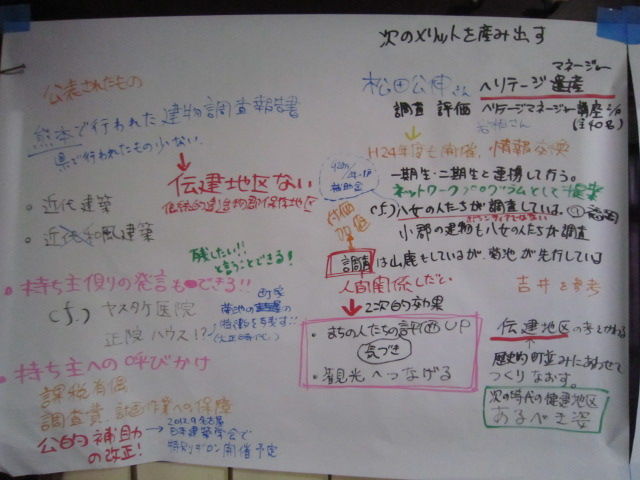 次のメリットを産み出す
公表されたもの
熊本で行われた建物調査報告書
県で行われたもの少ない
伝建地区ない
伝統的建造物群保存地区
・近代建築
・近代和風建築
残したい!!
と言うことできる!
・持ち主側の発言も できる!!
(cf.) ヤスタケ医院
正院ハウス!?
菊池の
(大正時代)
・持ち主への呼びかけ
課税省偲
調査費、計画作業への保障
公的補助の改正!
→2012.9 名古屋
日本建築学会で
特別サロン開催予定
マネージャー
松田公伸さん ヘリテージ遺産
調査 評価 ヘリテージマネージャー講座
(全40名)
H24年度も開催、情報交換
一期生・二期生と連携して行う。
ネットワークプログラムとして提案
補助金
付加価値
cf.) 八女の人たちが調査している。① 福岡
小郡の建物も八女の人たちが調査
調査は山鹿もしているが、菊池が先行している
人間関係しだい
吉井を参考
2次的効果
・まちの人たちの評価UP
気づき
・観光へつなげる
伝建地区の考えかた
歴史的町並みにあわせて
つくりなおす。
次の時代の伝建地区
あるべき姿